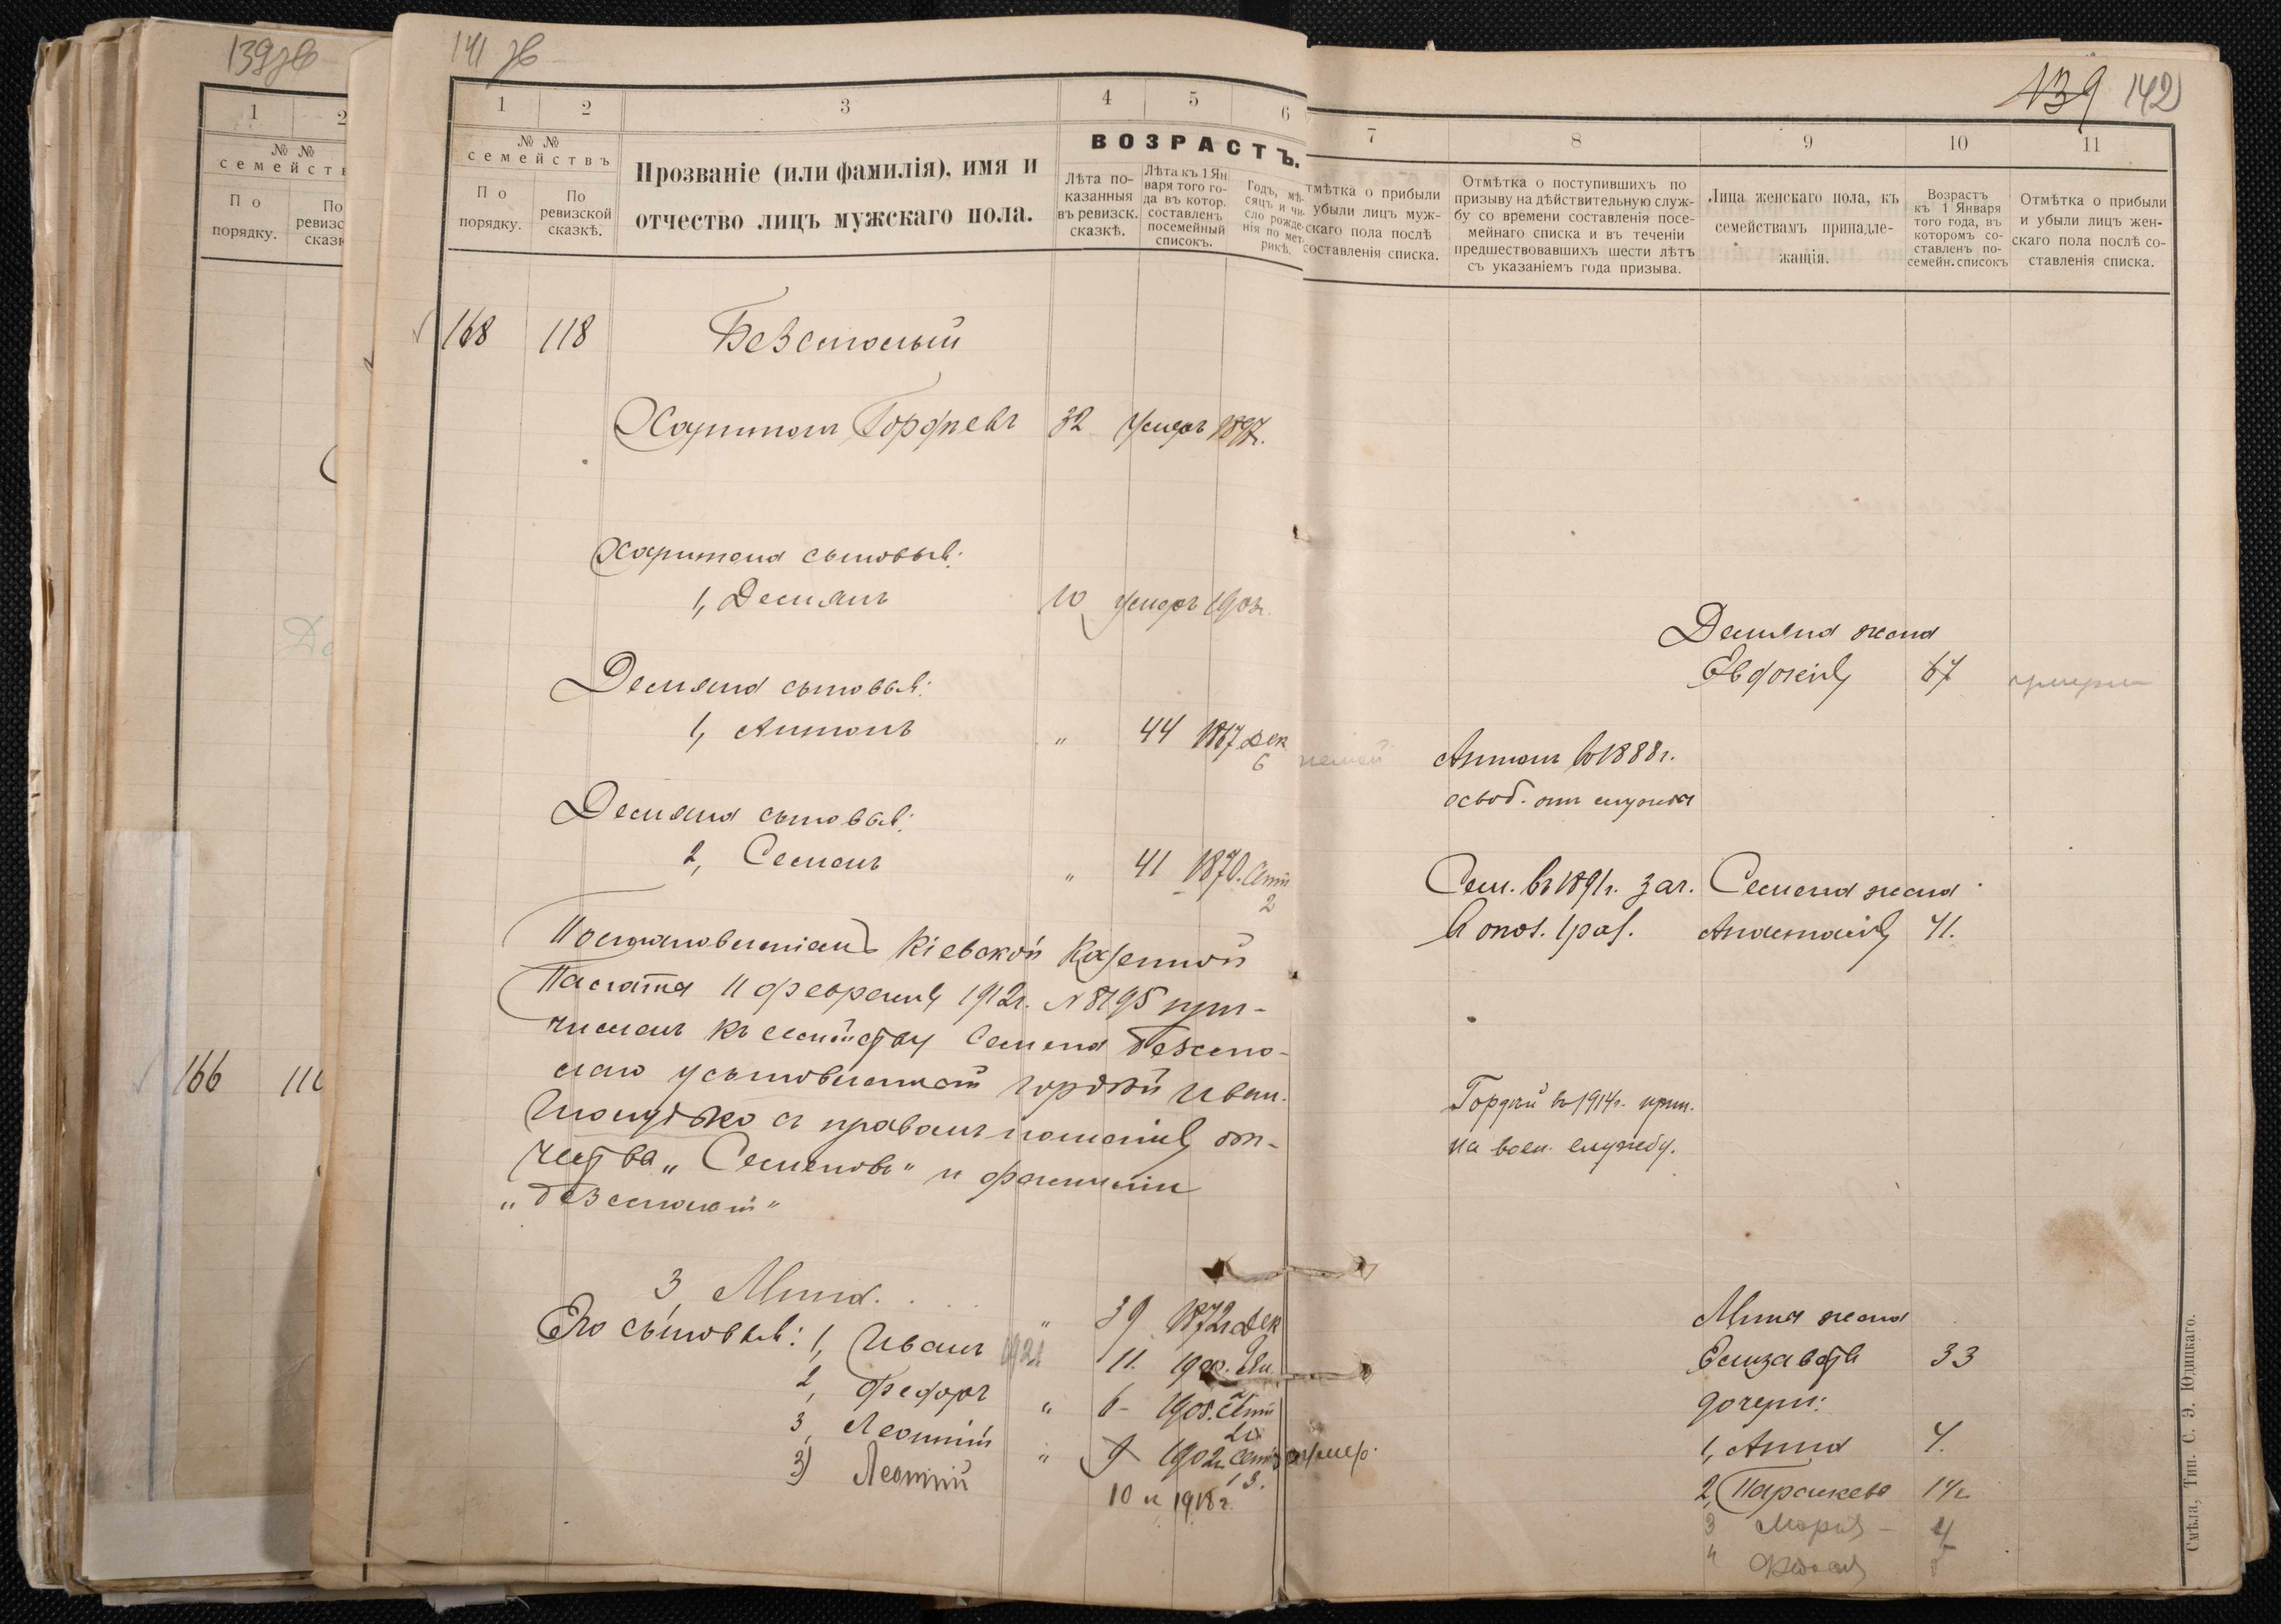 139 об
1
2
№ №
семейств
По
порядку.
По
ревизс
сказк
Да
166 11
141 об
1
2
3
4
5
6
№ №
семействъ
По
порядку.
По
ревизской
сказкѣ.
Прозваніе (или фамилія), имя и
отчество лицъ мужскаго пола.
ВОЗРАСТЪ.
Лѣта по-
казанныя
въ ревизск.
сказкѣ.
Лѣта къ 1 Ян
варя того го-
да въ котор.
составленъ
посемейный
списокъ.
Годъ, мѣ-
сяцъ и чи-
сло рожде-
нія по мет.
рикѣ.
168 118 Безсмолый
Харитонъ Гордѣевъ 32 умеръ 1897г.
Харитона сыновья:
1, Демьянъ 10 умеръ 1903г.
Демьяна сыновья:
1, Антонъ " 44 1867 Дек
6
Демьяна сыновья:
2, Семенъ " 41 1870. Сент
2
Постановленіемъ Кіевской Казенной
Палаты 11 февраля 1912г. № 8195 при-
численъ къ семейству Семена Безсмо-
лаго усыновленный Гордѣй Иван.
с правомъ ношенія от-
чества "Семеновъ" и фамиліи
"Безсмолый"
3, Мина. . . " 39 1872г Дек
Его сыновья: 1, Иванъ 1921 11. 1900. Ян
2, Федоръ " 6 1905. Сент
20
3, Леонтій " 9 1902г Сент умер.
13.
3) Леонтій 10 и 1918г.
139 142
7
8
9
10
11
тмѣтка о прибыли
убыли лицъ муж-
скаго пола послѣ
составленія списка.
Отмѣтка о поступившихъ по
призыву на дѣйствительную служ-
бу со времени составленія посе-
мейнаго списка и въ теченіи
предшествовавшихъ шести лѣтъ
съ указаніемъ года призыва.
Лица женскаго пола, къ
семействамъ принадле-
жащія.
Возрастъ
къ 1 Января
того года, въ
которомъ со-
ставленъ по-
семейн. списокъ
Отмѣтка о прибыли
и убыли лицъ жен-
скаго пола послѣ со-
ставленія списка.
Демьяна жена
Евдокія 67 умерла
Антонъ въ 1888г.
освоб. отъ службы
Сем. въ 1891г. зач.
в опол. 1 раз.
Семена жена
Анастасія 41.
Гордѣй въ 1914г. прин.
на воен. службу.
Мины жена
Елизавета 33
дочери:
1, Анна 4.
2, Параскева 14
3 Марія - 4
4
Смѣла, Тип. С. Э. Юдицкаго.